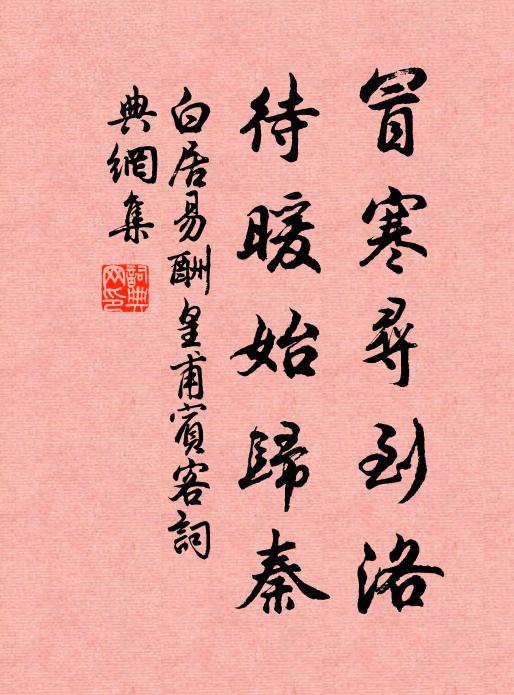 冒寒尋到洛
待暖始歸秦
白居易酬皇甫賓客詞
典網集
詞典網印